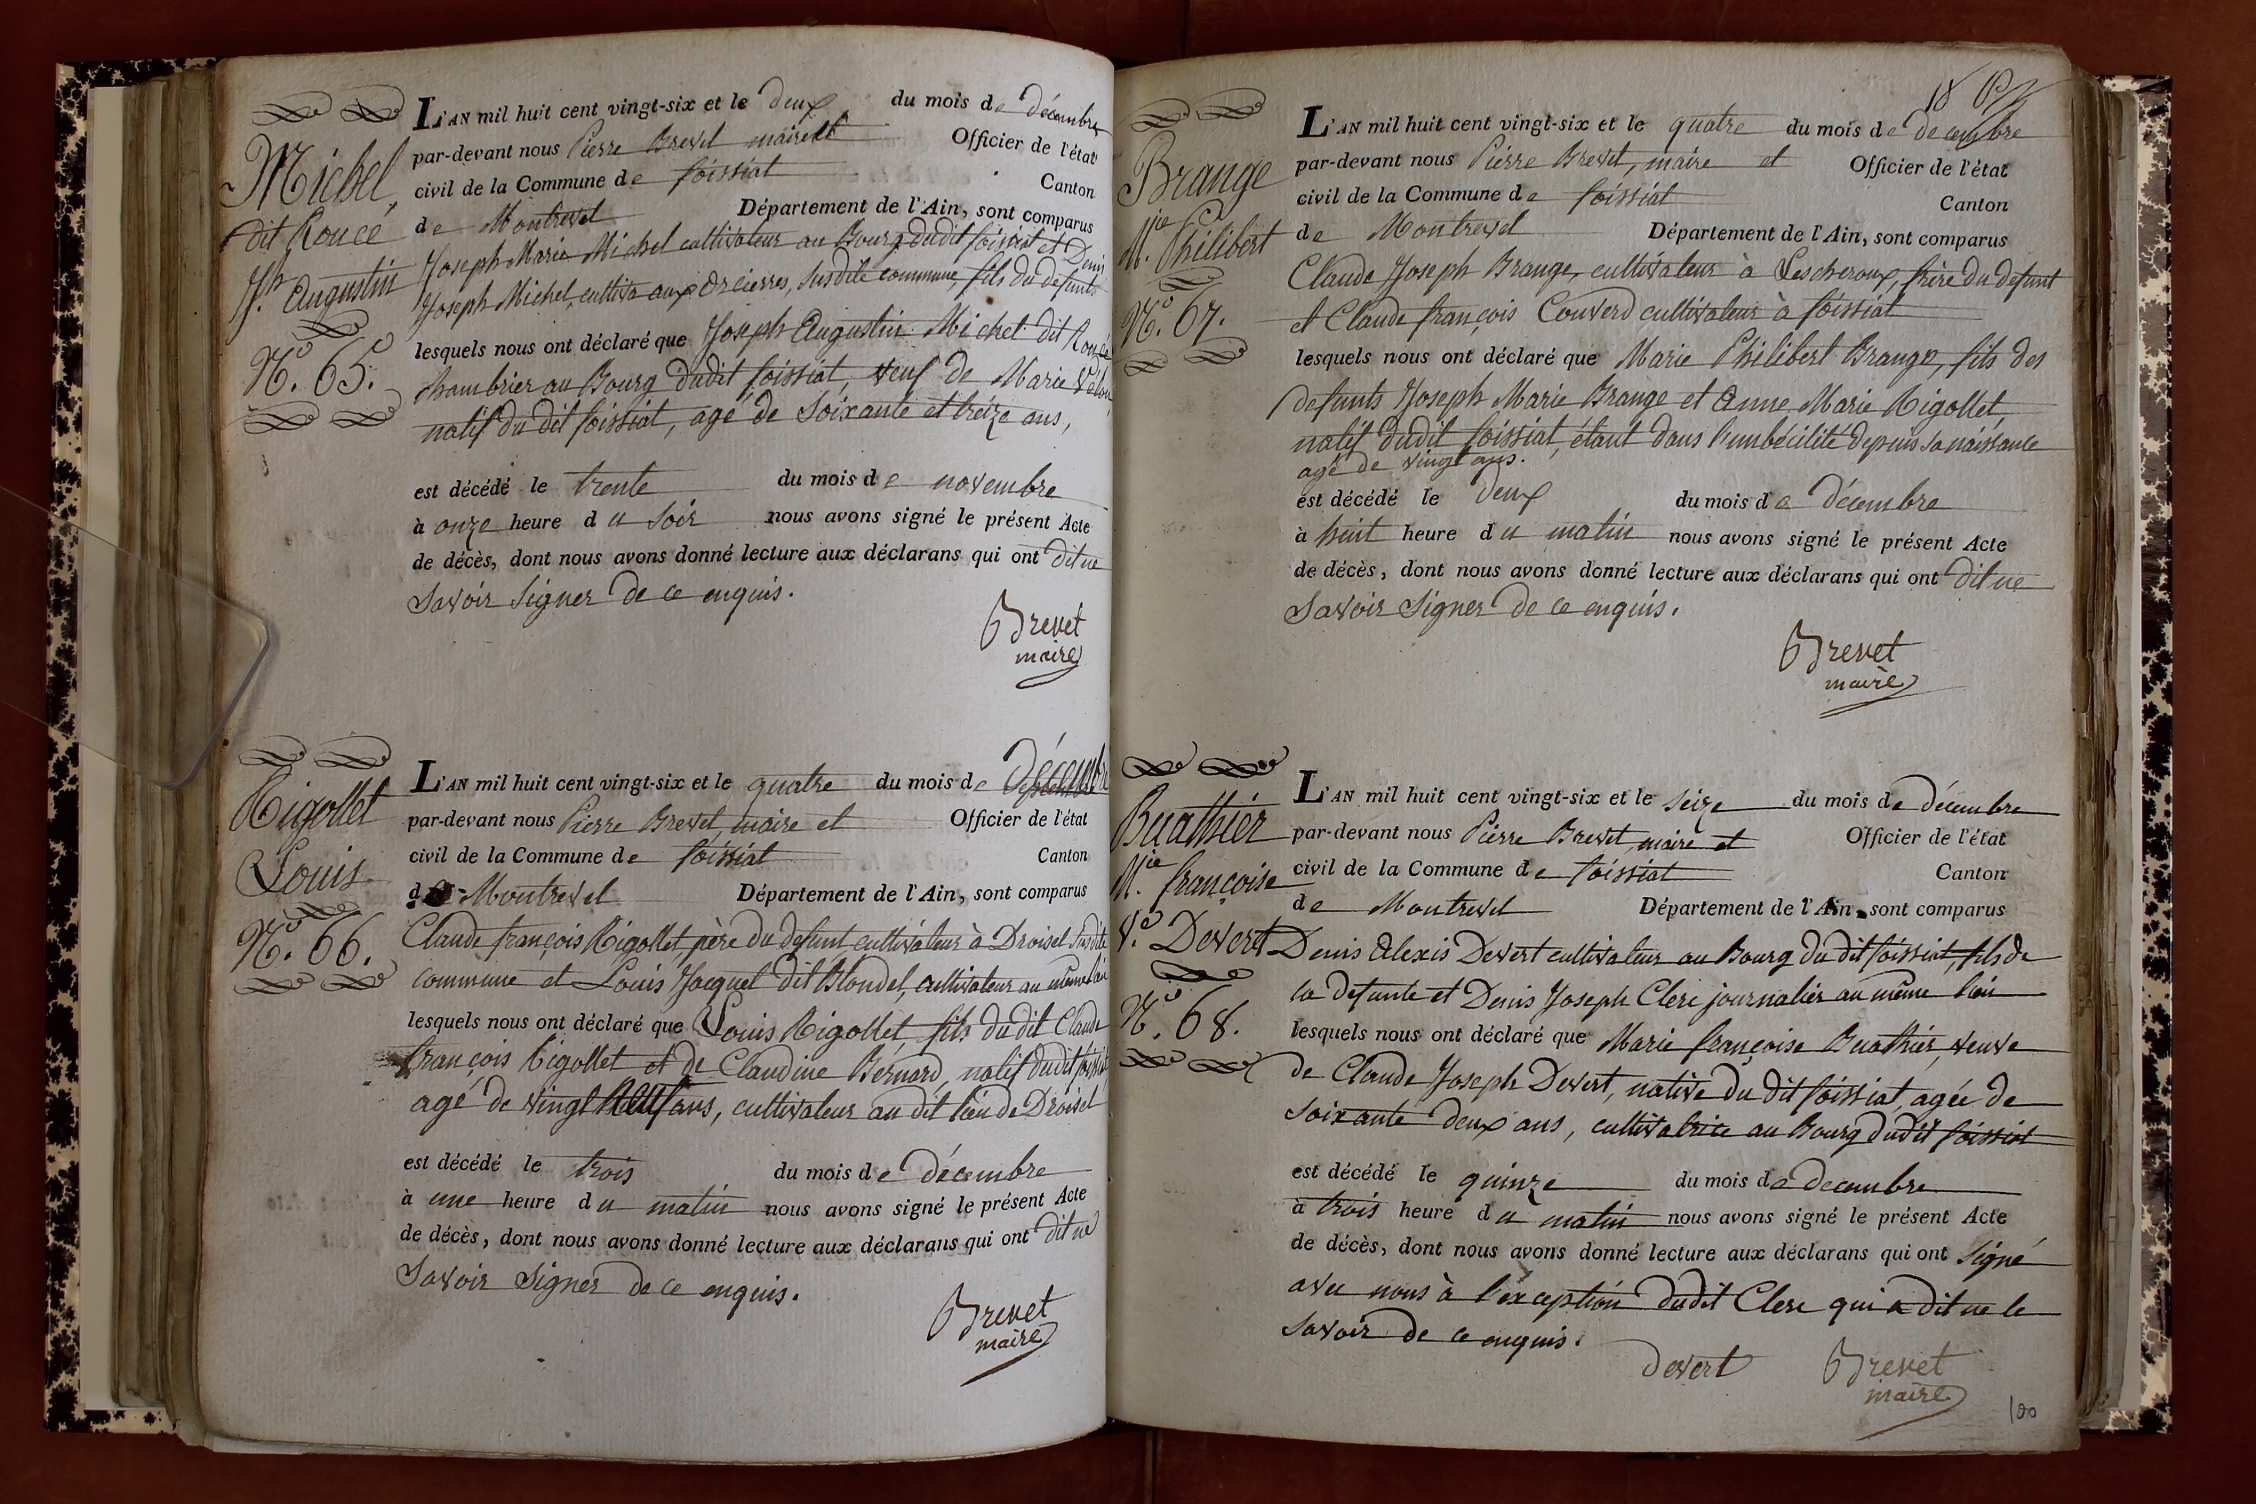 Michel,
dit Roucé
Jh. Augustin
N.o 65.
L'AN mil huit cent vingt-six et le deux du mois de décembre
par-devant nous Pierre Brevet maire et Officier de l'état
civil de la Commune de foissiat Canton
de Montrevel Département de l'Ain, sont comparus
Joseph Marie Michel cultivateur au Bourg dudit foissiat et Denis
Joseph Michel, cultiva aux Orcierres, susdite commune, fils du defunt
lesquels nous ont déclaré que Joseph Augustin Michel dit Roucé
chambrier au Bourg dudit foissiat, veuf de Marie
natif du dit foissiat, agé de soixante et treize ans,
est décédé le trente du mois de novembre
à onze heure du soir nous avons signé le présent Acte
de décès, dont nous avons donné lecture aux déclarans qui ont dit ne
savoir signer de ce enquis.
Brevet
maire
Rigollet
Louis
N.o 66.
L'AN mil huit cent vingt-six et le quatre du mois de Décembre
par-devant nous Pierre Brevet, maire et Officier de l'état
civil de la Commune de foissiat Canton
de Montrevel Département de l'Ain, sont comparus
Claude françois Rigollet, père du defunt, cultivateur à Droisel susdite
commune et Louis Jacquet dit Blondel, cultivateur au même lieu
lesquels nous ont déclaré que Louis Rigollet, fils du dit Claude
françois Rigollet et de Claudine Bernard, natif dudit foissiat
agé de vingt Neuf ans, cultivateur au dit lieu de Droisel
est décédé le trois du mois de décembre
à une heure du matin nous avons signé le présent Acte
de décès, dont nous avons donné lecture aux déclarans qui ont dit ne
savoir signer de ce enquis.
Brevet
maire
18
Brange
M.ie Philibert
N.o 67.
L'AN mil huit cent vingt-six et le quatre du mois de decembre
par-devant nous Pierre Brevet, maire et Officier de l'état
civil de la Commune de foissiat Canton
de Montrevel Département de l'Ain, sont comparus
Claude Joseph Brange, cultivateur à Lescheroux, frère du defunt
et Claude françois Couverd cultivateur à foissiat
lesquels nous ont déclaré que Marie Philibert Brange, fils des
defunts Joseph Marie Brange et Anne Marie Rigollet,
natif dudit foissiat, étant dans l'imbécilité depuis sa naissance
agé de vingt ans.
est décédé le deux du mois de décembre
à huit heure du matin nous avons signé le présent Acte
de décès, dont nous avons donné lecture aux déclarans qui ont dit ne
savoir signer de ce enquis.
Brevet
maire
Buathier
M.ie françoise
V.e Devert
N.o 68.
L'AN mil huit cent vingt-six et le seize du mois de décembre
par-devant nous Pierre Brevet, maire et Officier de l'état
civil de la Commune de foissiat Canton
de Montrevel Département de l'Ain, sont comparus
Denis Alexis Devert cultivateur au Bourg du dit foissiat, fils de
la defunte et Denis Joseph Clerc journalier au même lieu
lesquels nous ont déclaré que Marie françoise Buathier, veuve
de Claude Joseph Devert, native du dit foissiat, agée de
soixante deux ans, cultivatrice au Bourg dudit foissiat
est décédé le quinze du mois de decembre
à trois heure du matin nous avons signé le présent Acte
de décès, dont nous avons donné lecture aux déclarans qui ont signé
avec nous à l'exception dudit Clerc qui a dit ne le
savoir de ce enquis.
devert Brevet
maire
100